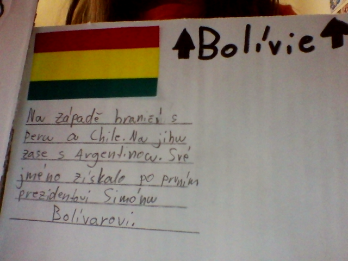 Bolívie
Na západě hraničí s
Peru a Chile. Na jihu
zase s Argentinou. Své
jméno získalo po prvním
prezidentovi Simónu
Bolívarovi.